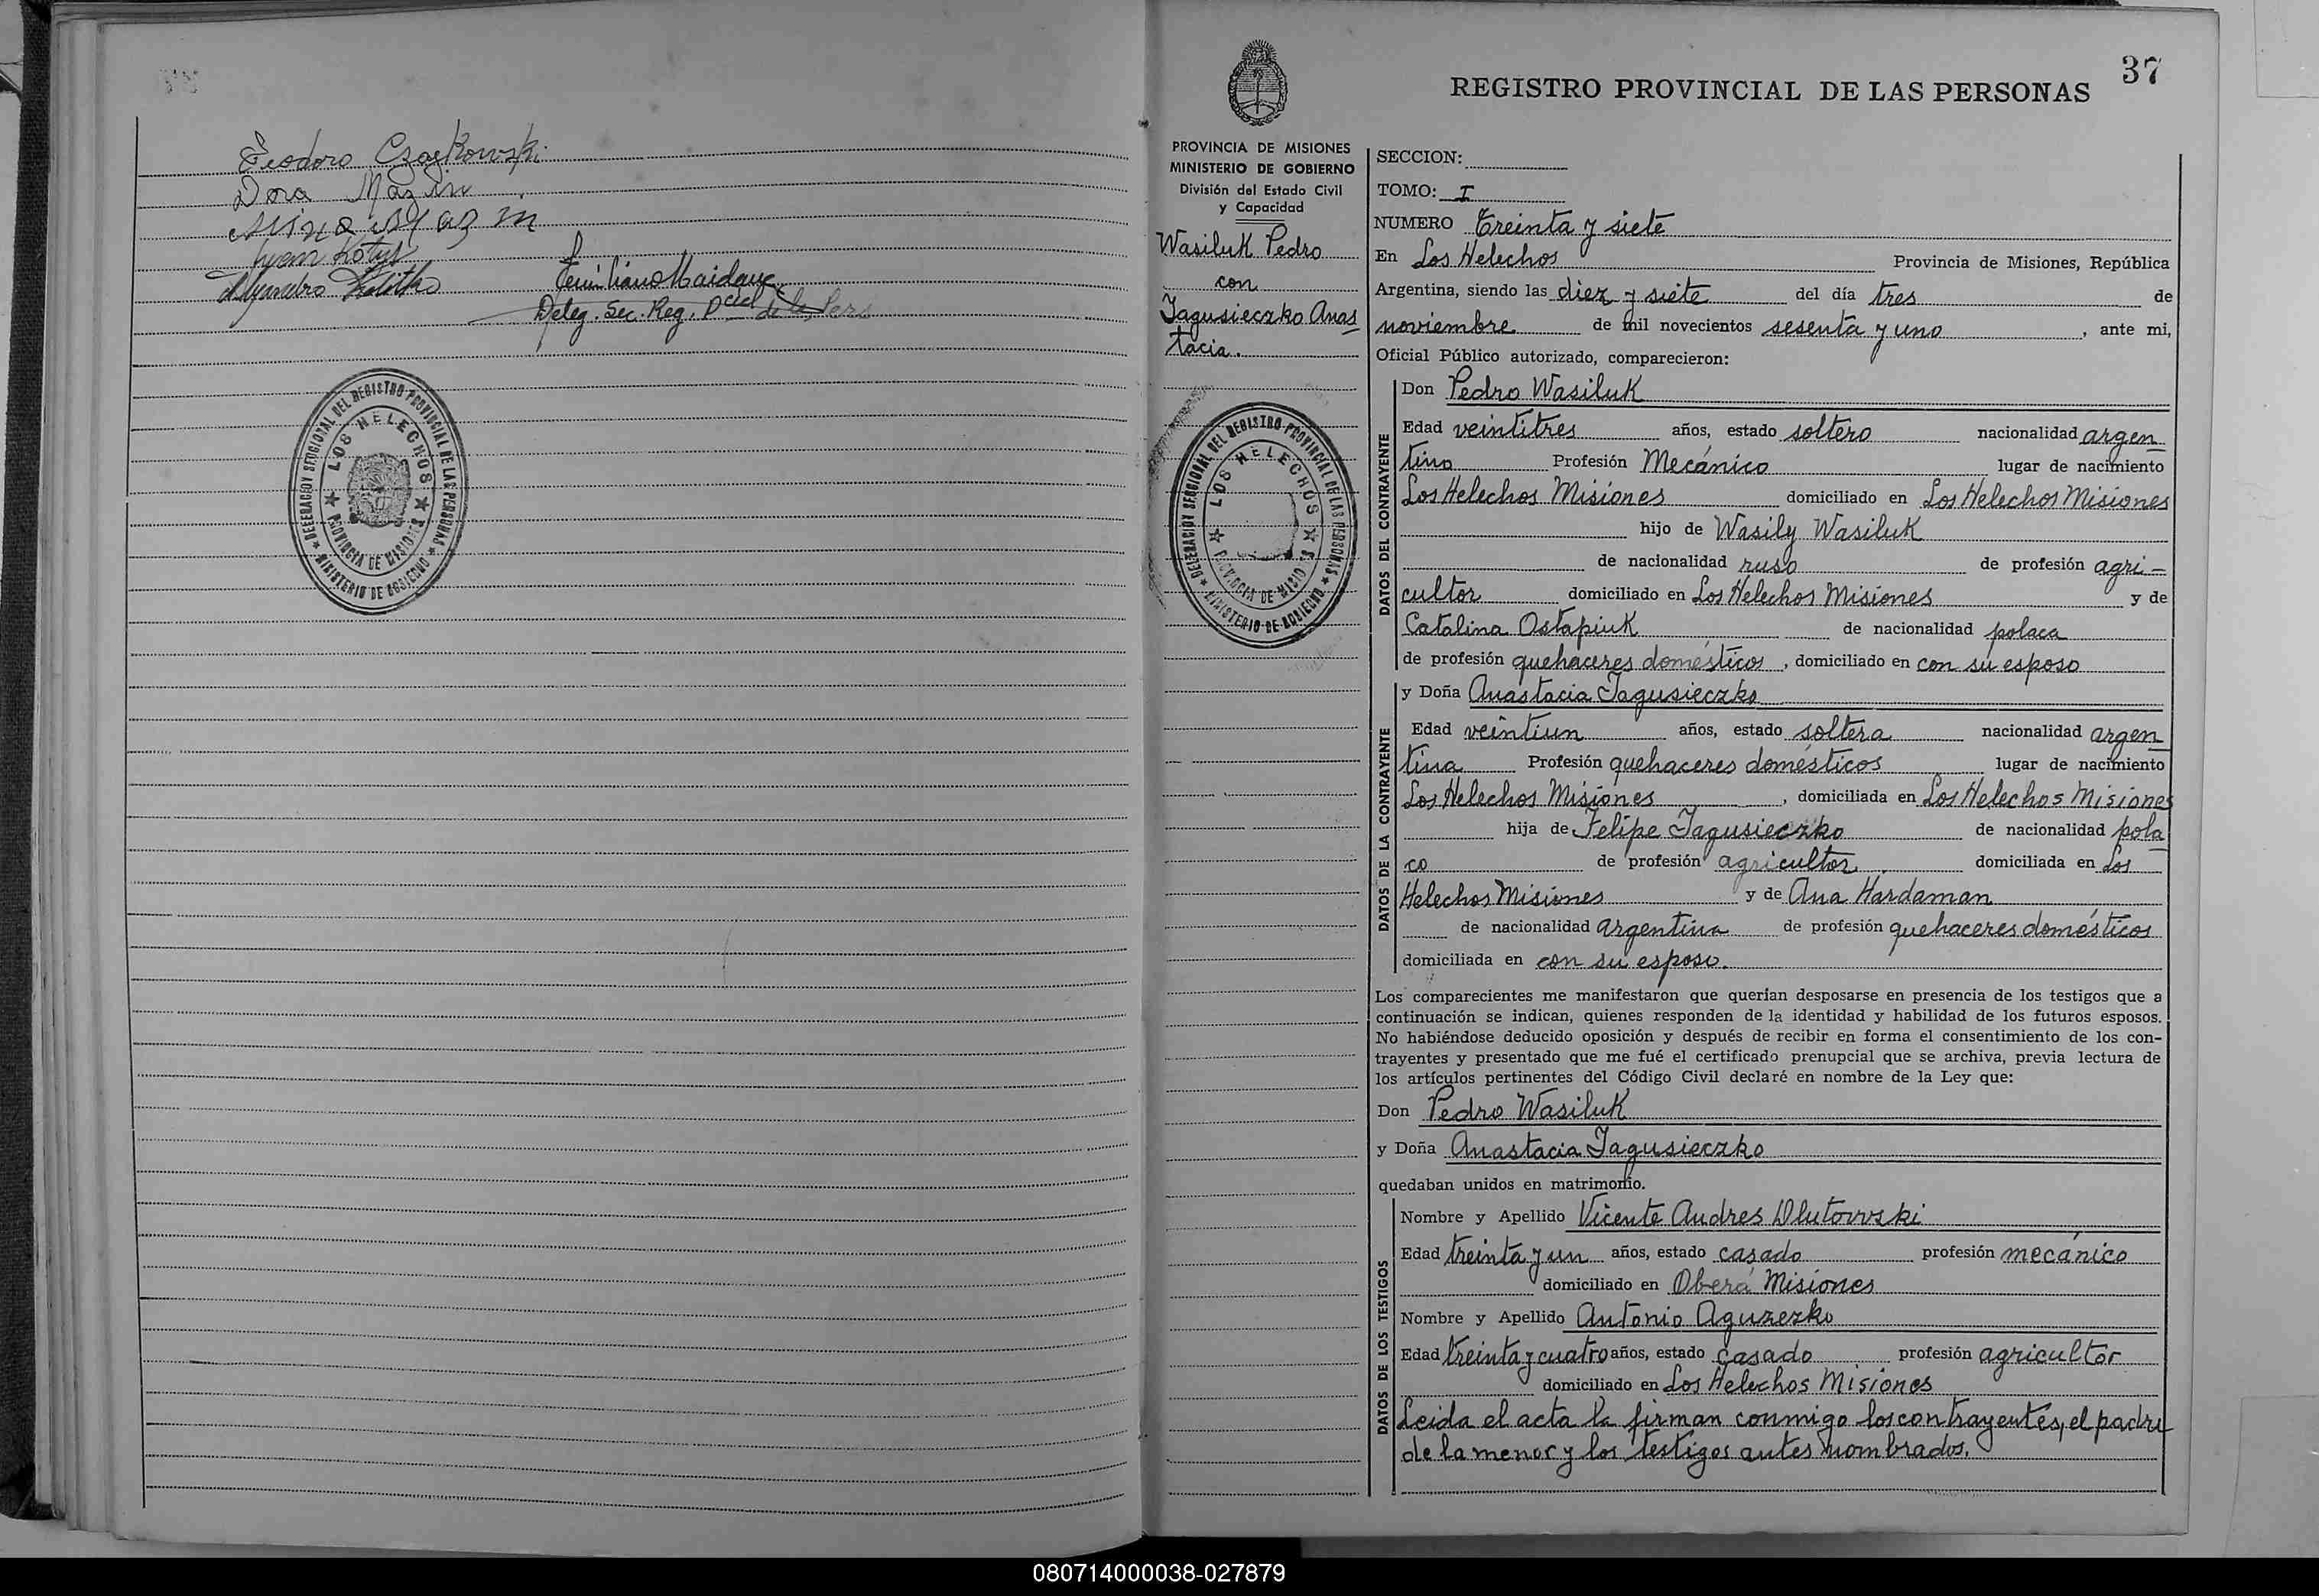 Teodoro Czajkowski
Dora Mazin
Nina Mazin
Deleg. Sec. Reg. Pcial de las Pers
DELEGACION SECCIONAL DEL REGISTRO PROVINCIAL DE LAS PERSONAS
LOS HELECHOS
PROVINCIA DE MISIONES
MINISTERIO DE GOBIERNO
37
REGISTRO PROVINCIAL DE LAS PERSONAS
PROVINCIA DE MISIONES
MINISTERIO DE GOBIERNO
División del Estado Civil
y Capacidad
Wasiluk Pedro
con
Jagusieczko Anas
tacia.
DELEGACION SECCIONAL DEL REGISTRO PROVINCIAL DE LAS PERSONAS
LOS HELECHOS
PROVINCIA DE MISIONES
MINISTERIO DE GOBIERNO
SECCION:
TOMO: I
NUMERO Treinta y siete
En Los Helechos Provincia de Misiones, República
Argentina, siendo las diez y siete del día tres de
noviembre de mil novecientos sesenta y uno, ante mi,
Oficial Público autorizado, comparecieron:
DATOS DEL CONTRAYENTE
Don Pedro Wasiluk
Edad veintitres años, estado soltero nacionalidad argen
tino Profesión Mecánico lugar de nacimiento
Los Helechos Misiones domiciliado en Los Helechos Misiones
hijo de Wasily Wasiluk
de nacionalidad ruso de profesión agri-
cultor domiciliado en Los Helechos Misiones y de
Catalina Ostapiuk de nacionalidad polaca
de profesión quehaceres domésticos, domiciliado en con su esposo
DATOS DE LA CONTRAYENTE
y Doña Anastacia Jagusieczko
Edad veintiun años, estado soltera nacionalidad argen
tina Profesión quehaceres domésticos lugar de nacimiento
Los Helechos Misiones, domiciliada en Los Helechos Misiones
hija de Felipe Jagusieczko de nacionalidad pola
co de profesión agricultor domiciliada en Los
Helechos Misiones y de Ana Hardaman
de nacionalidad argentina de profesión quehaceres domésticos
domiciliada en con su esposo.
Los comparecientes me manifestaron que querían desposarse en presencia de los testigos que a
continuación se indican, quienes responden de la identidad y habilidad de los futuros esposos.
No habiéndose deducido oposición y después de recibir en forma el consentimiento de los con-
trayentes y presentado que me fué el certificado prenupcial que se archiva, previa lectura de
los artículos pertinentes del Código Civil declaré en nombre de la Ley que:
Don Pedro Wasiluk
y Doña Anastacia Jagusieczko
quedaban unidos en matrimonio.
DATOS DE LOS TESTIGOS
Nombre y Apellido Vicente Andres Dlutowski
Edad treinta y un años, estado casado profesión mecánico
domiciliado en Oberá Misiones
Nombre y Apellido Antonio Aguzezko
Edad treinta y cuatro años, estado casado profesión agricultor
domiciliado en Los Helechos Misiones
Leida el acta la firman conmigo los contrayentes, el padre
de la menor y los testigos antes nombrados.
080714000038-027879